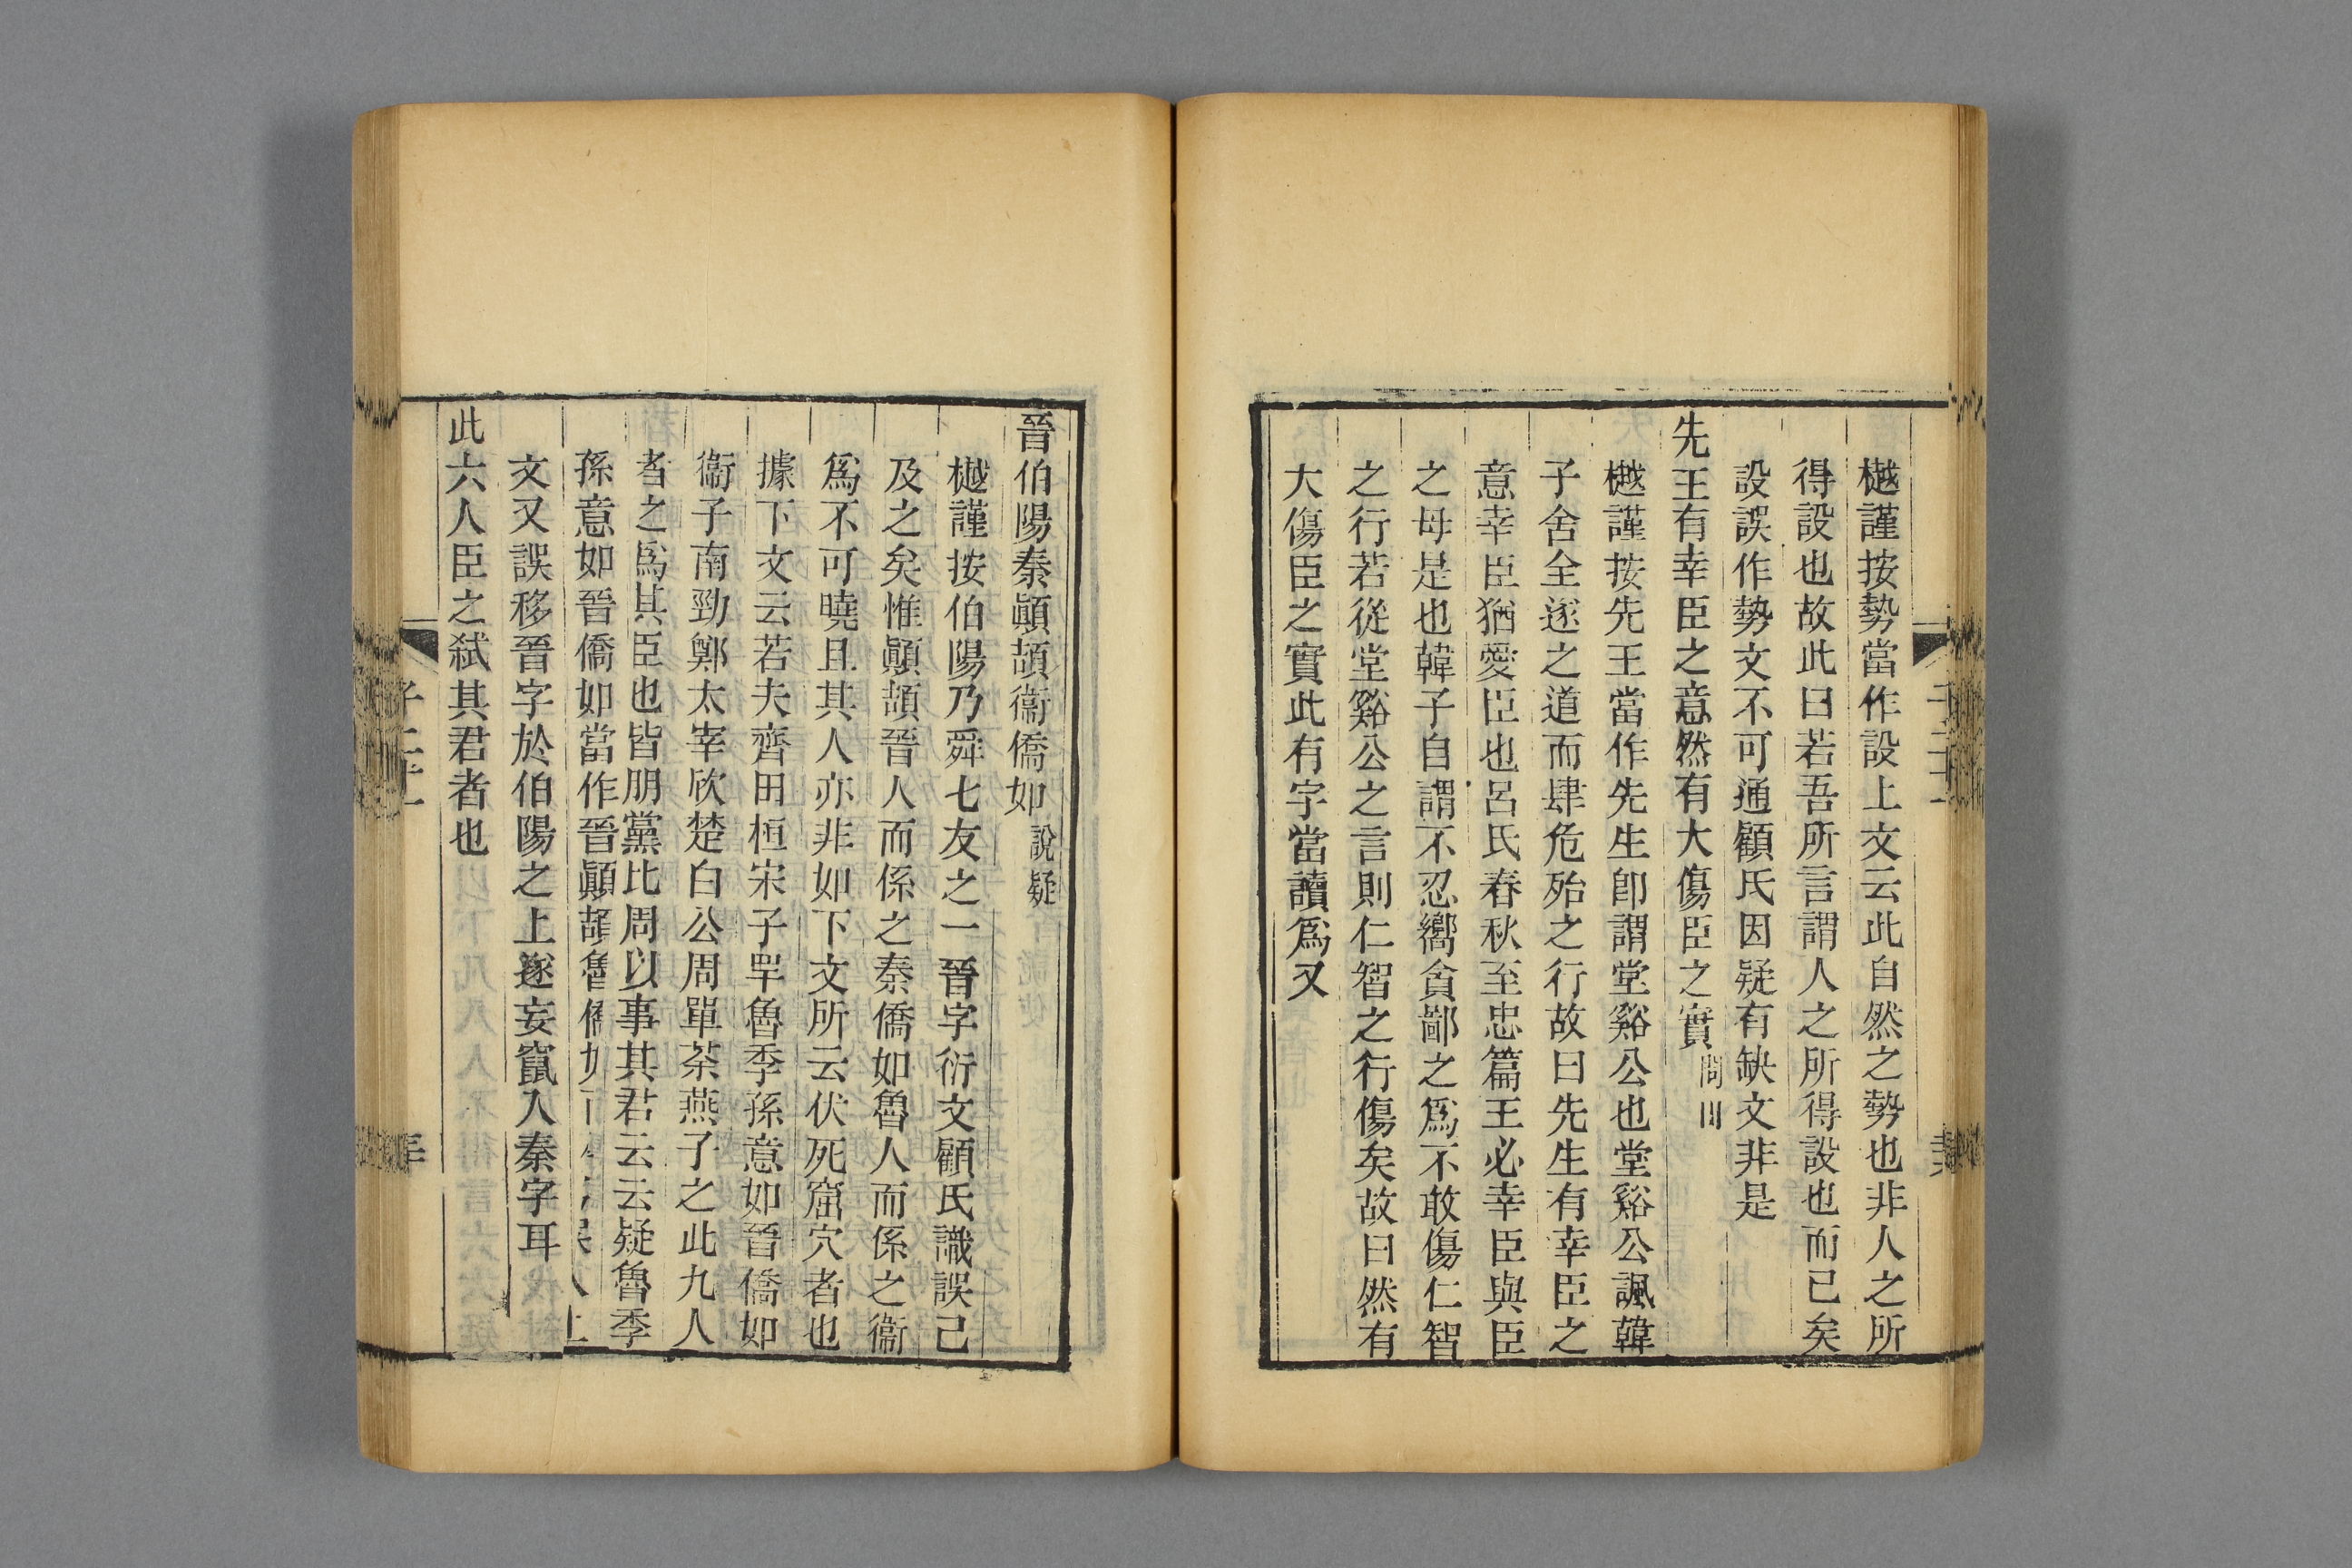 樾謹按勢當作設上文云此自然之勢也非人之所
得設也故此曰若吾所言謂人之所得設也而已矣
設誤作勢文不可通顧氏因疑有缺文非是
先王有幸臣之意然有大傷臣之實問田
樾謹按先王當作先生卽謂堂谿公也堂谿公諷韓
子舍全遂之道而肆危殆之行故曰先生有幸臣之
意幸臣猶愛臣也呂氏春秋至忠篇王必幸臣與臣
之母是也韓子自謂不忍嚮貪鄙之爲不敢傷仁智
之行若從堂谿公之言則仁智之行傷矣故曰然有
大傷臣之實此有字當讀爲又
晉伯陽秦顚頡衞僑如說疑
樾謹按伯陽乃舜七友之一晉字衍文顧氏識誤已
及之矣惟顚頡晉人而係之秦僑如魯人而係之衞
爲不可曉且其人亦非如下文所云伏死窟穴者也
據下文云若夫齊田桓宋子罕魯季孫意如晉僑如
衞子南勁鄭太宰欣楚白公周單荼燕子之此九人
者之爲其臣也皆朋黨比周以事其君云云疑魯季
孫意如晉僑如當作晉顚頡魯僑如
文又誤移晉字於伯陽之上遂妄竄入秦字耳
此六人臣之弑其君者也
子二十一